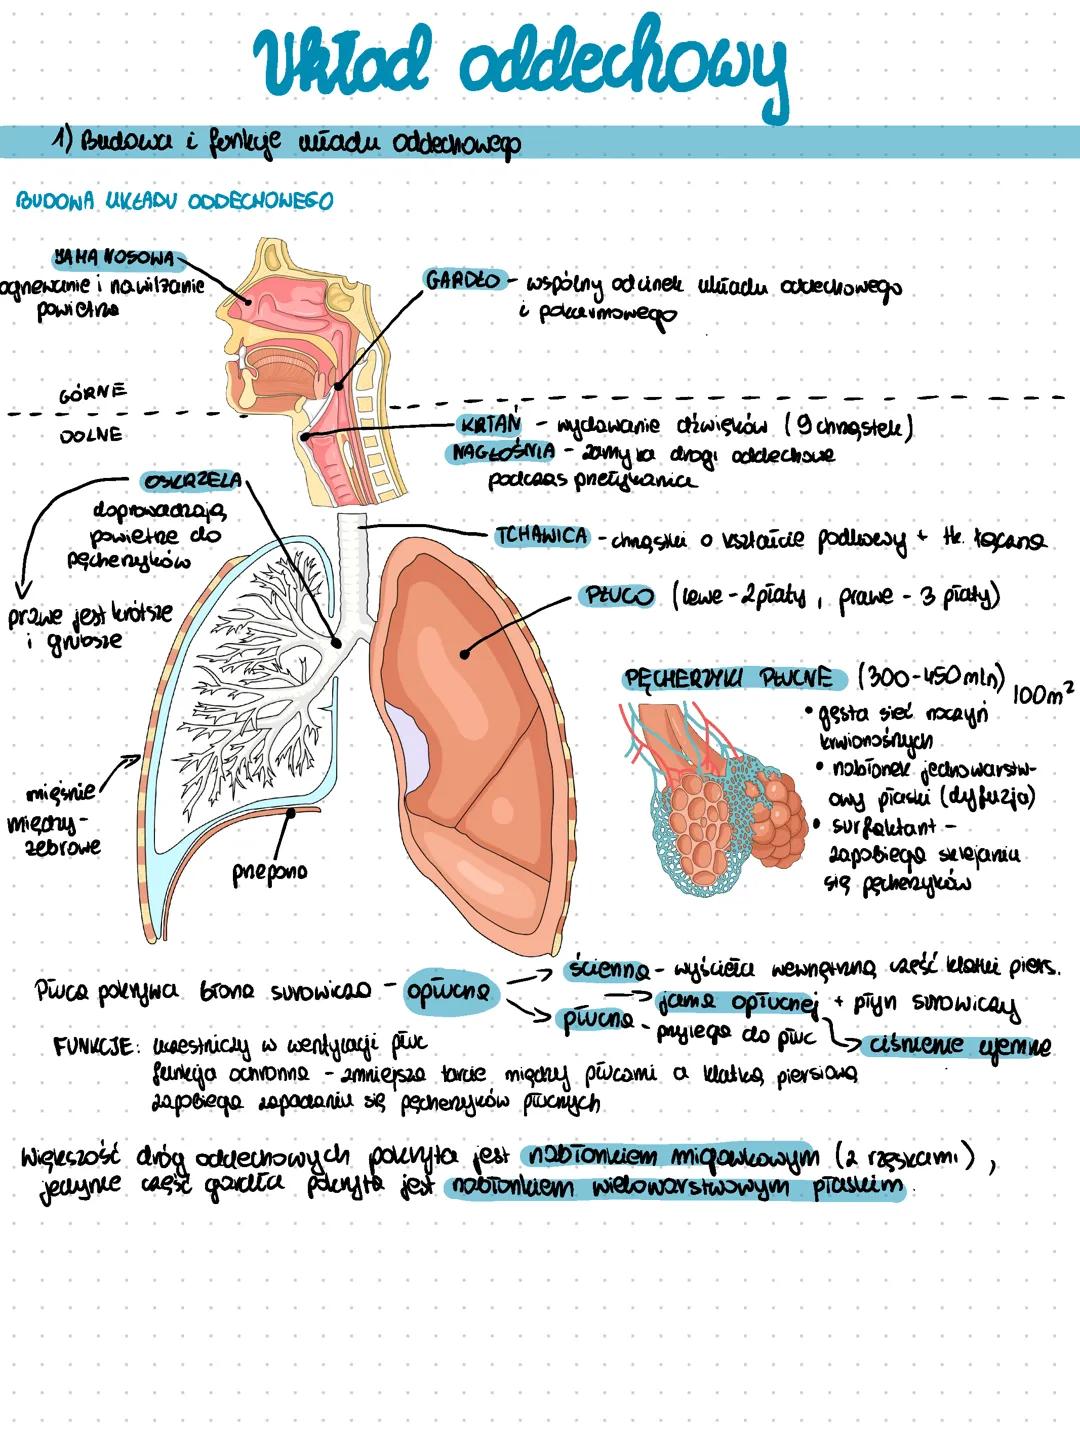 Układ oddechowy
1) Budowa i funkcje układu oddechowego
BUDOWA UKŁADU ODDECHOWEGO
JAMA NOSOWA
ogrzewanie i nawilżanie
powietrza
GARDŁO - wspólny odcinek układu oddechowego
i pokarmowego
GÓRNE
DOLNE
KRTAŃ - wydawanie dźwięków (9 chrząstek)
NAGŁOŚNIA - zamyka drogi oddechowe
podczas przełykania
OSKRZELA
doprowadzają
powietrze do
pęcherzyków
prawe jest krótsze
i grubsze
TCHAWICA - chrząstki o kształcie podkowy + tk. łączna
PŁUCO (lewe - 2 płaty, prawe - 3 płaty)
PĘCHERZYKI PŁUCNE (300-450 mln) 100m²
• gęsta sieć naczyń
krwionośnych
• nabłonek jednowarstw-
owy płaski (dyfuzja)
• surfaktant -
zapobiega sklejaniu
się pęcherzyków
mięśnie
między-
żebrowe
przepona
Płuca pokrywa błona surowicza - opłucna
ścienna - wyścieła wewnętrzną część klatki piers.
jama opłucnej + płyn surowiczy
płucna - przylega do płuc
ciśnienie ujemne
FUNKCJE: uczestniczy w wentylacji płuc
funkcja ochronna - zmniejsza tarcie między płucami a klatką piersiową
zapobiega zapadaniu się pęcherzyków płucnych
Większość dróg oddechowych pokryta jest nabłonkiem migawkowym (z rzęskami),
jedynie część gardła pokryta jest nabłonkiem wielowarstwowym płaskim.